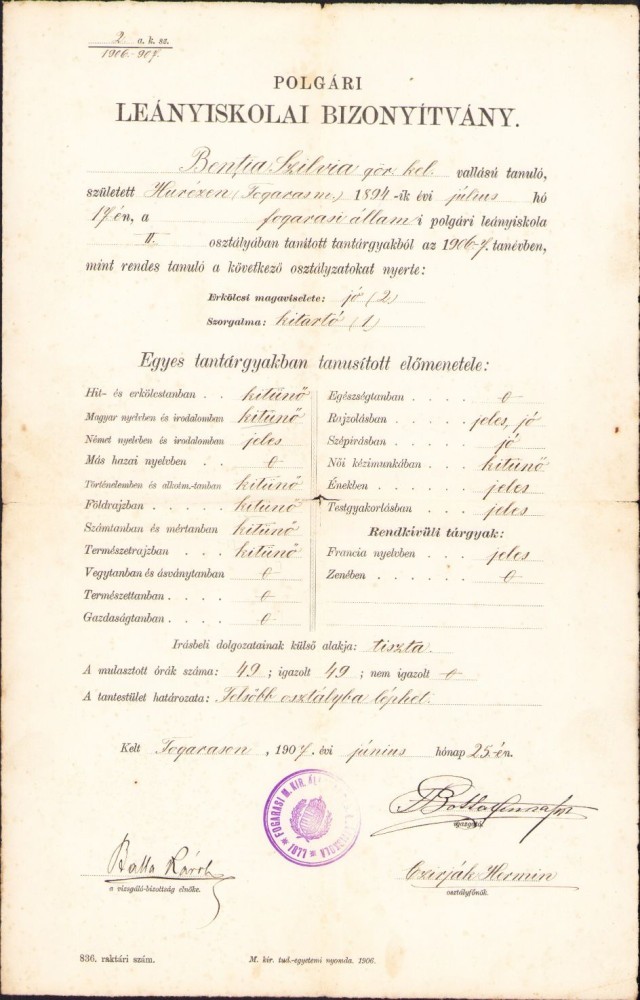 2 a. k. sz.
1906.-907.
POLGÁRI
LEÁNYISKOLAI BIZONYÍTVÁNY.
Benția Szilvia gör. kel. vallású tanuló,
született Hurézen (Fogarasm.) 1894-ik évi július hó
17 én, a fogarasi állami polgári leányiskola
II. osztályában tanított tantárgyakból az 1906-7. tanévben,
mint rendes tanuló a következő osztályzatokat nyerte:
Erkölcsi magaviselete: jó (2)
Szorgalma: kitartó (1)
Egyes tantárgyakban tanusított előmenetele:
Hit- és erkölcstanban . . kitünő
Magyar nyelvben és irodalomban kitünő
Német nyelvben és irodalomban jeles
Más hazai nyelvben . . 0
Történelemben és alkotm.-tanban kitünő
Földrajzban . . . . kitünő
Számtanban és mértanban kitünő
Természetrajzban . . . kitünő
Vegytanban és ásványtanban 0
Természettanban . . . . 0
Gazdaságtanban . . . . 0
Egészségtanban . . . . 0
Rajzolásban . . . . jeles, jó
Szépírásban . . . . jó
Női kézimunkában . . . kitünő
Énekben . . . . . jeles
Testgyakorlásban . . . jeles
Rendkívüli tárgyak:
Francia nyelvben . . . jeles
Zenében . . . . . . 0
Irásbeli dolgozatainak külső alakja: tiszta
A mulasztott órák száma: 49 ; igazolt 49 ; nem igazolt 0
A tantestület határozata: Felsőbb osztályba léphet.
Kelt Fogarason , 1907 évi június hónap 25-én.
FOGARASI M. KIR. ÁL
igazgató.
Balla Károly
a vizsgáló-bizottság elnöke.
Czirják Hermin
osztályfőnök.
836. raktári szám.
M. kir. tud.-egyetemi nyomda. 1906.